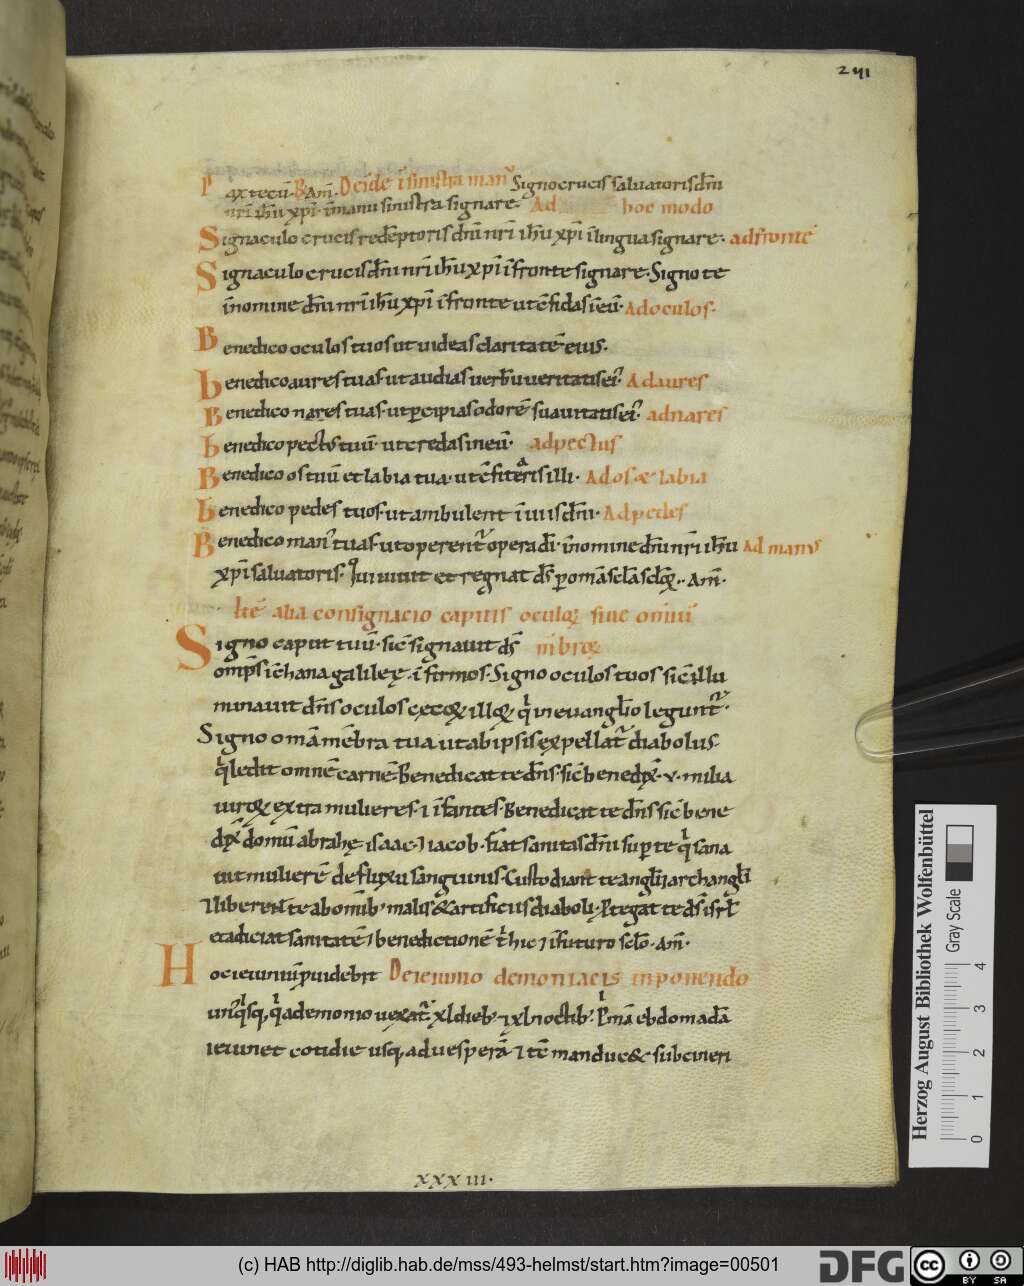 241
Pax tecū. R Am̄. Deīde ī sinistra man' Signo crucis saluatoris dn̄i
nr̄i ih̄u xp̄i. in manu sinistra signare. Ad hoc modo
Signaculo crucis redēptoris dn̄i nr̄i ih̄u xp̄i ī lingua signare. ad fronte
Signaculo crucis dn̄i nr̄i ih̄u xp̄i ī fronte signare. Signo te
ī nomine dn̄i nr̄i ih̄u xp̄i ī fronte ut cfidas ī eū. Ad oculos.
Benedico oculos tuos ut uideas claritatē eius.
benedico aures tuas ut audias uerbū ueritatis ei'. Ad aures
Benedico nares tuas. ut pcipias odorē suauitatis ei'. ad nares
benedico pectus tuū. ut credas in eū. ad pectus
Benedico os tuū et labia tua. ut cfitearis illi. Ad os & labia
benedico pedes tuos. ut ambulent ī uiis dn̄i. Ad pedes
Benedico man' tuas. ut operent' opera dī. ī nomine dn̄i nr̄i ih̄u Ad manus
xp̄i saluatoris. Qui uiuit et regnat ds̄ p om̄a scl̄a sclo℞. Am̄.
Itē alia consignacio capitis oculo℞ siue omniū
Signo caput tuū. sic signauit ds̄ mbro℞
omps ī chana galileę. ī firmos. Signo oculos tuos sic illu
minauit dn̄s oculos ceco℞ illo℞. qi in euangl̄io legunt'.
Signo om̄a mēbra tua ut ab ipsis expellat' diabolus.
qi ledit omnē carnē. Benedicat te dn̄s. sic bened' x̄. v. milia
uiro℞ extra mulieres. ⁊ īfantes. Benedicat te dn̄s sic bene
d'x̄ domū abrahę isaac. ⁊ iacob. fiat sanitas dn̄i sup te qi sana
uit mulierē de fluxu sanguinis. Custodiant te angl̄i ⁊ archangl̄i
⁊ liberent te ab omīb' malis & artificiis diaboli. Ptegat te ds̄ isrl̄
et adiciat sanitatē ⁊ benedictionē tī hic ⁊ ī futuro sclo. Am̄.
Hoc ieiuniū puidebit De ieiunio demoniacis inponendo
un'qisq, qi a demonio uexat'. xl dieb. ⁊ xl noctib'. Pimā ebdomadā
ieiunet cotidie usq, ad uesperā. ⁊ tc manduc& sub cineri
XXXIII.
Herzog August Bibliothek Wolfenbüttel
Gray Scale
0 1 2 3 4
(c) HAB http://diglib.hab.de/mss/493-helmst/start.htm?image=00501
DFG
cc BY SA